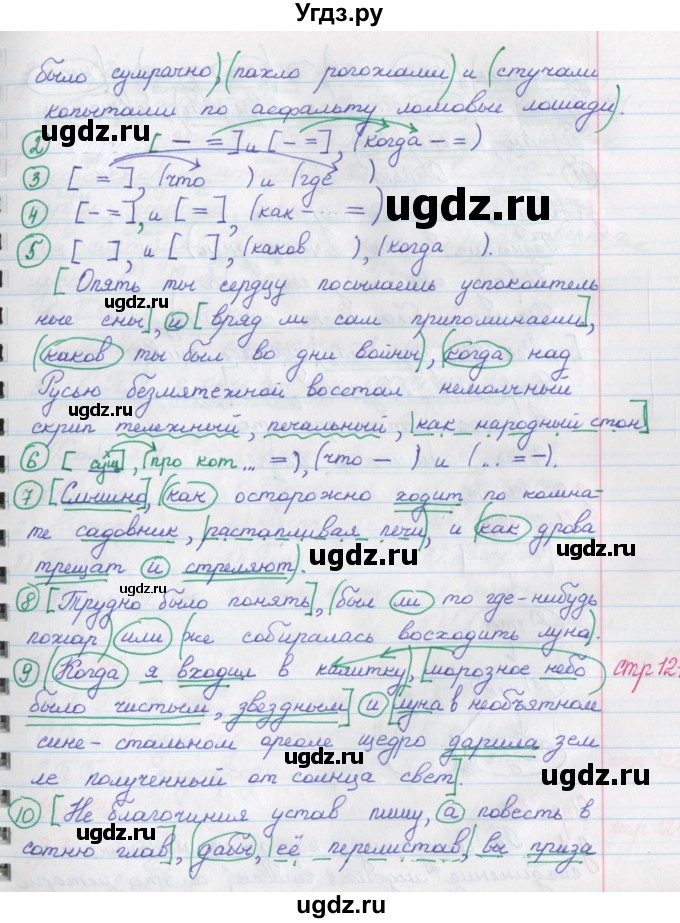 Угдз.ру
было сумрачно), (пахло рогожами) и (стучали
копытами по асфальту ломовые лошади).
2 [ – = ] и [ – = ], (когда – =)
3 [ = ], (что ) и (где )
4 [ – = ], и [ = ], (как – ... =)
5 [ ], и [ ], (каков ), (когда ).
[Опять ты сердцу посылаешь успокоитель
ные сны], и [вряд ли сам припоминаешь],
(каков ты был во дни войны), (когда над
Русью безмятежной восстал немолчный
скрип тележный, печальный, |как народный стон|
6 [ сущ ], (про кот... =), (что – ) и (... = –).
7 [Слышно], (как осторожно ходит по комна-
те садовник, |растапливая печи|, и (как дрова
трещат и стреляют).
8 [Трудно было понять], (был ли то где-нибудь
пожар) или (же собиралась восходить луна).
9 (Когда я входил в калитку), [морозное небо стр 12
было чистым, звездным] и [луна в необъятном
сине-стальном ореоле щедро дарила зем
ле полученный от солнца свет].
10 [Не благочиния устав пишу, а повесть в
сотню глав], (дабы, |её перелистав|, вы приза
ugdz.ru
ugdz.ru
ugdz.ru
ugdz.ru
ugdz.ru
ugdz.ru
ugdz.ru
ugdz.ru
ugdz.ru
ugdz.ru
ugdz.ru
ugdz.ru
ugdz.ru
ugdz.ru